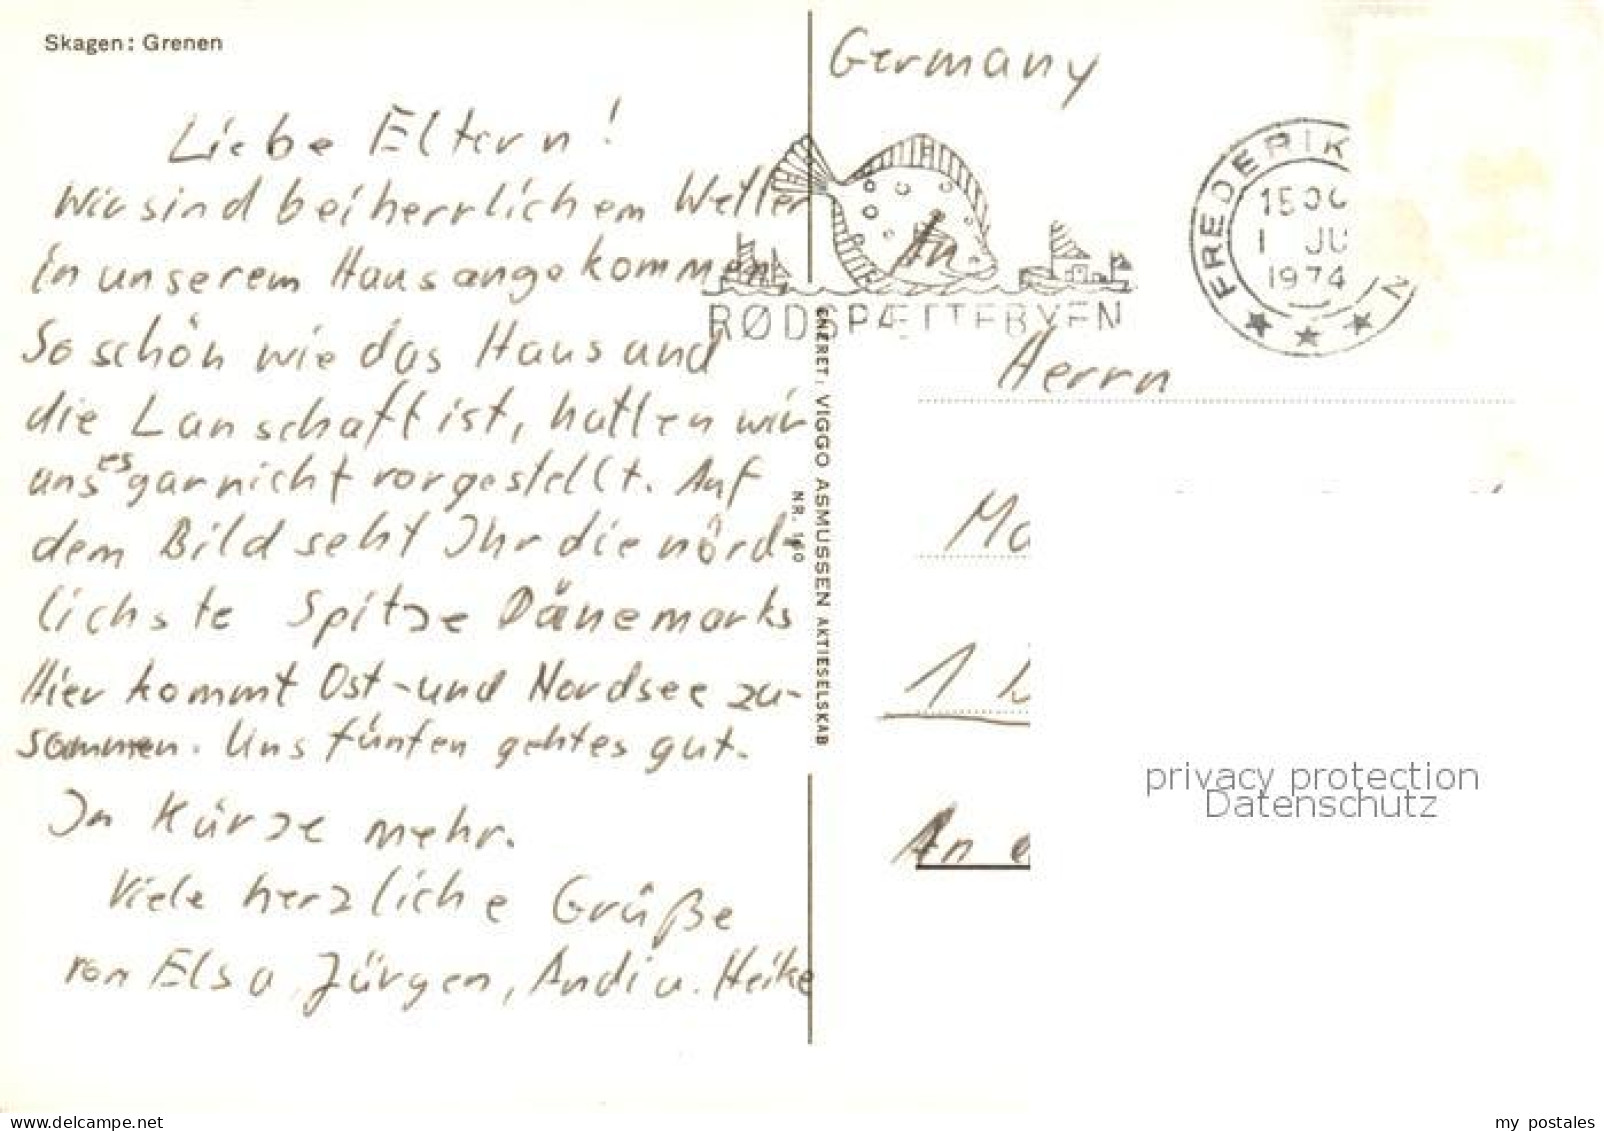 Skagen: Grenen
Liebe Eltern!
Wir sind bei herrlichem Wetter
in unserem Haus angekommen.
So schön wie das Haus und
die Lanschaft ist, hatten wir
uns es gar nicht vorgestellt. Auf
dem Bild seht Ihr die nörd-
lichste Spitze Dänemarks
Hier kommt Ost- und Nordsee zu-
sammen. Uns fünfen geht es gut.
In Kürze mehr.
Viele herzliche Grüße
von Elsa, Jürgen, Andi u. Heike
ENERET, VIGGO ASMUSSEN AKTIESELSKAB
NR. 160
Germany
RØDSPÆTTEBYEN
FREDERIK
1500
1 JU
1974
An
Herrn
Ma
1
An
privacy protection
Datenschutz
delcampe.net
my_postales